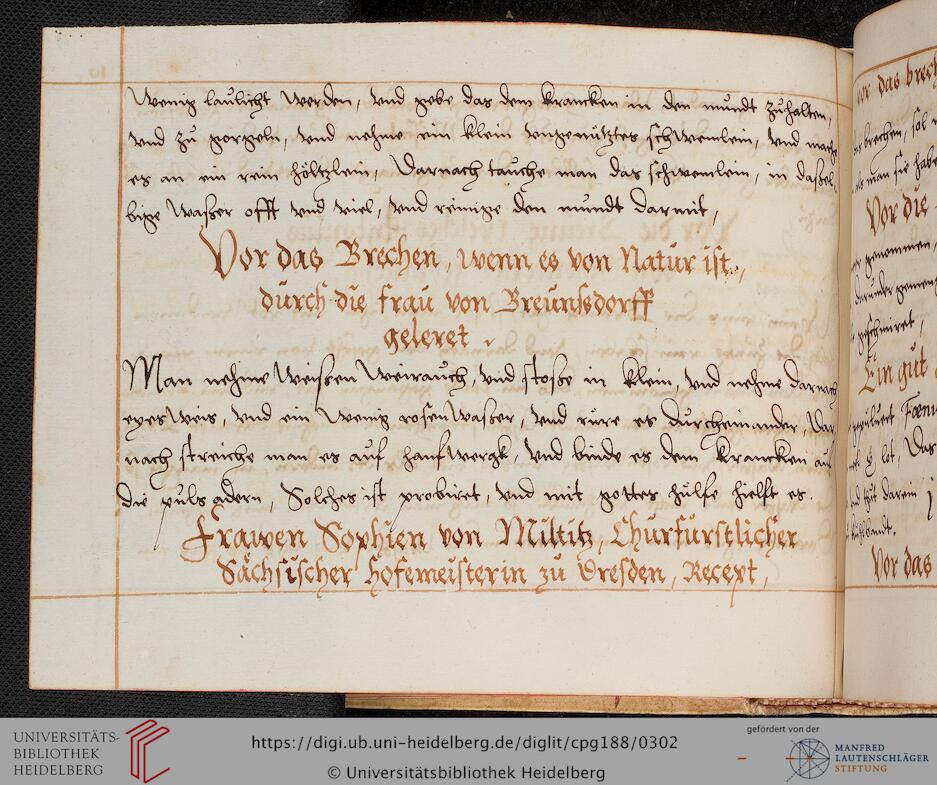 Wenig laulicht werden, vnd gebe das dem krancken in den mundt zuhalten,
vnd zu gorgeln, vnd nehme ein klein vngenütztes schwemlein, vnd mache
es an ein rein höltzlein, Darnach tauche man das schwemlein, in daßel,
bige waßer offt vnd viel, vnd reinige den mundt darmit,
Vor das Brechen, wenn es von Natur ist,
durch die frau von Breunßdorff
geleret,
Man nehme Weißen Weirauch, vnd stoße in klein, vnd nehme darnach
eyes weis, vnd ein wenig rosen waßer, vnd rüre es durcheinander, Dar
nach streiche man es auf hanfwergk, vnd binde es dem krancken auf
die puls adern, Solches ist probiret, vnd mit gottes hülfe hielft es.
Frawen Sophien von Miltitz, Churfürstlicher
Sächsischer hofemeisterin zu Dresden, Recept,
das brech
brechen, sol
man sie habe
Vor die
genommen,
darunder gemen
geschmiret,
Ein gut
gepuluert Foeni
lot, Das
thut darein
Vor das
UNIVERSITÄTS-
BIBLIOTHEK
HEIDELBERG
https://digi.ub.uni-heidelberg.de/diglit/cpg188/0302
© Universitätsbibliothek Heidelberg
gefördert von der
MANFRED
LAUTENSCHLÄGER
STIFTUNG